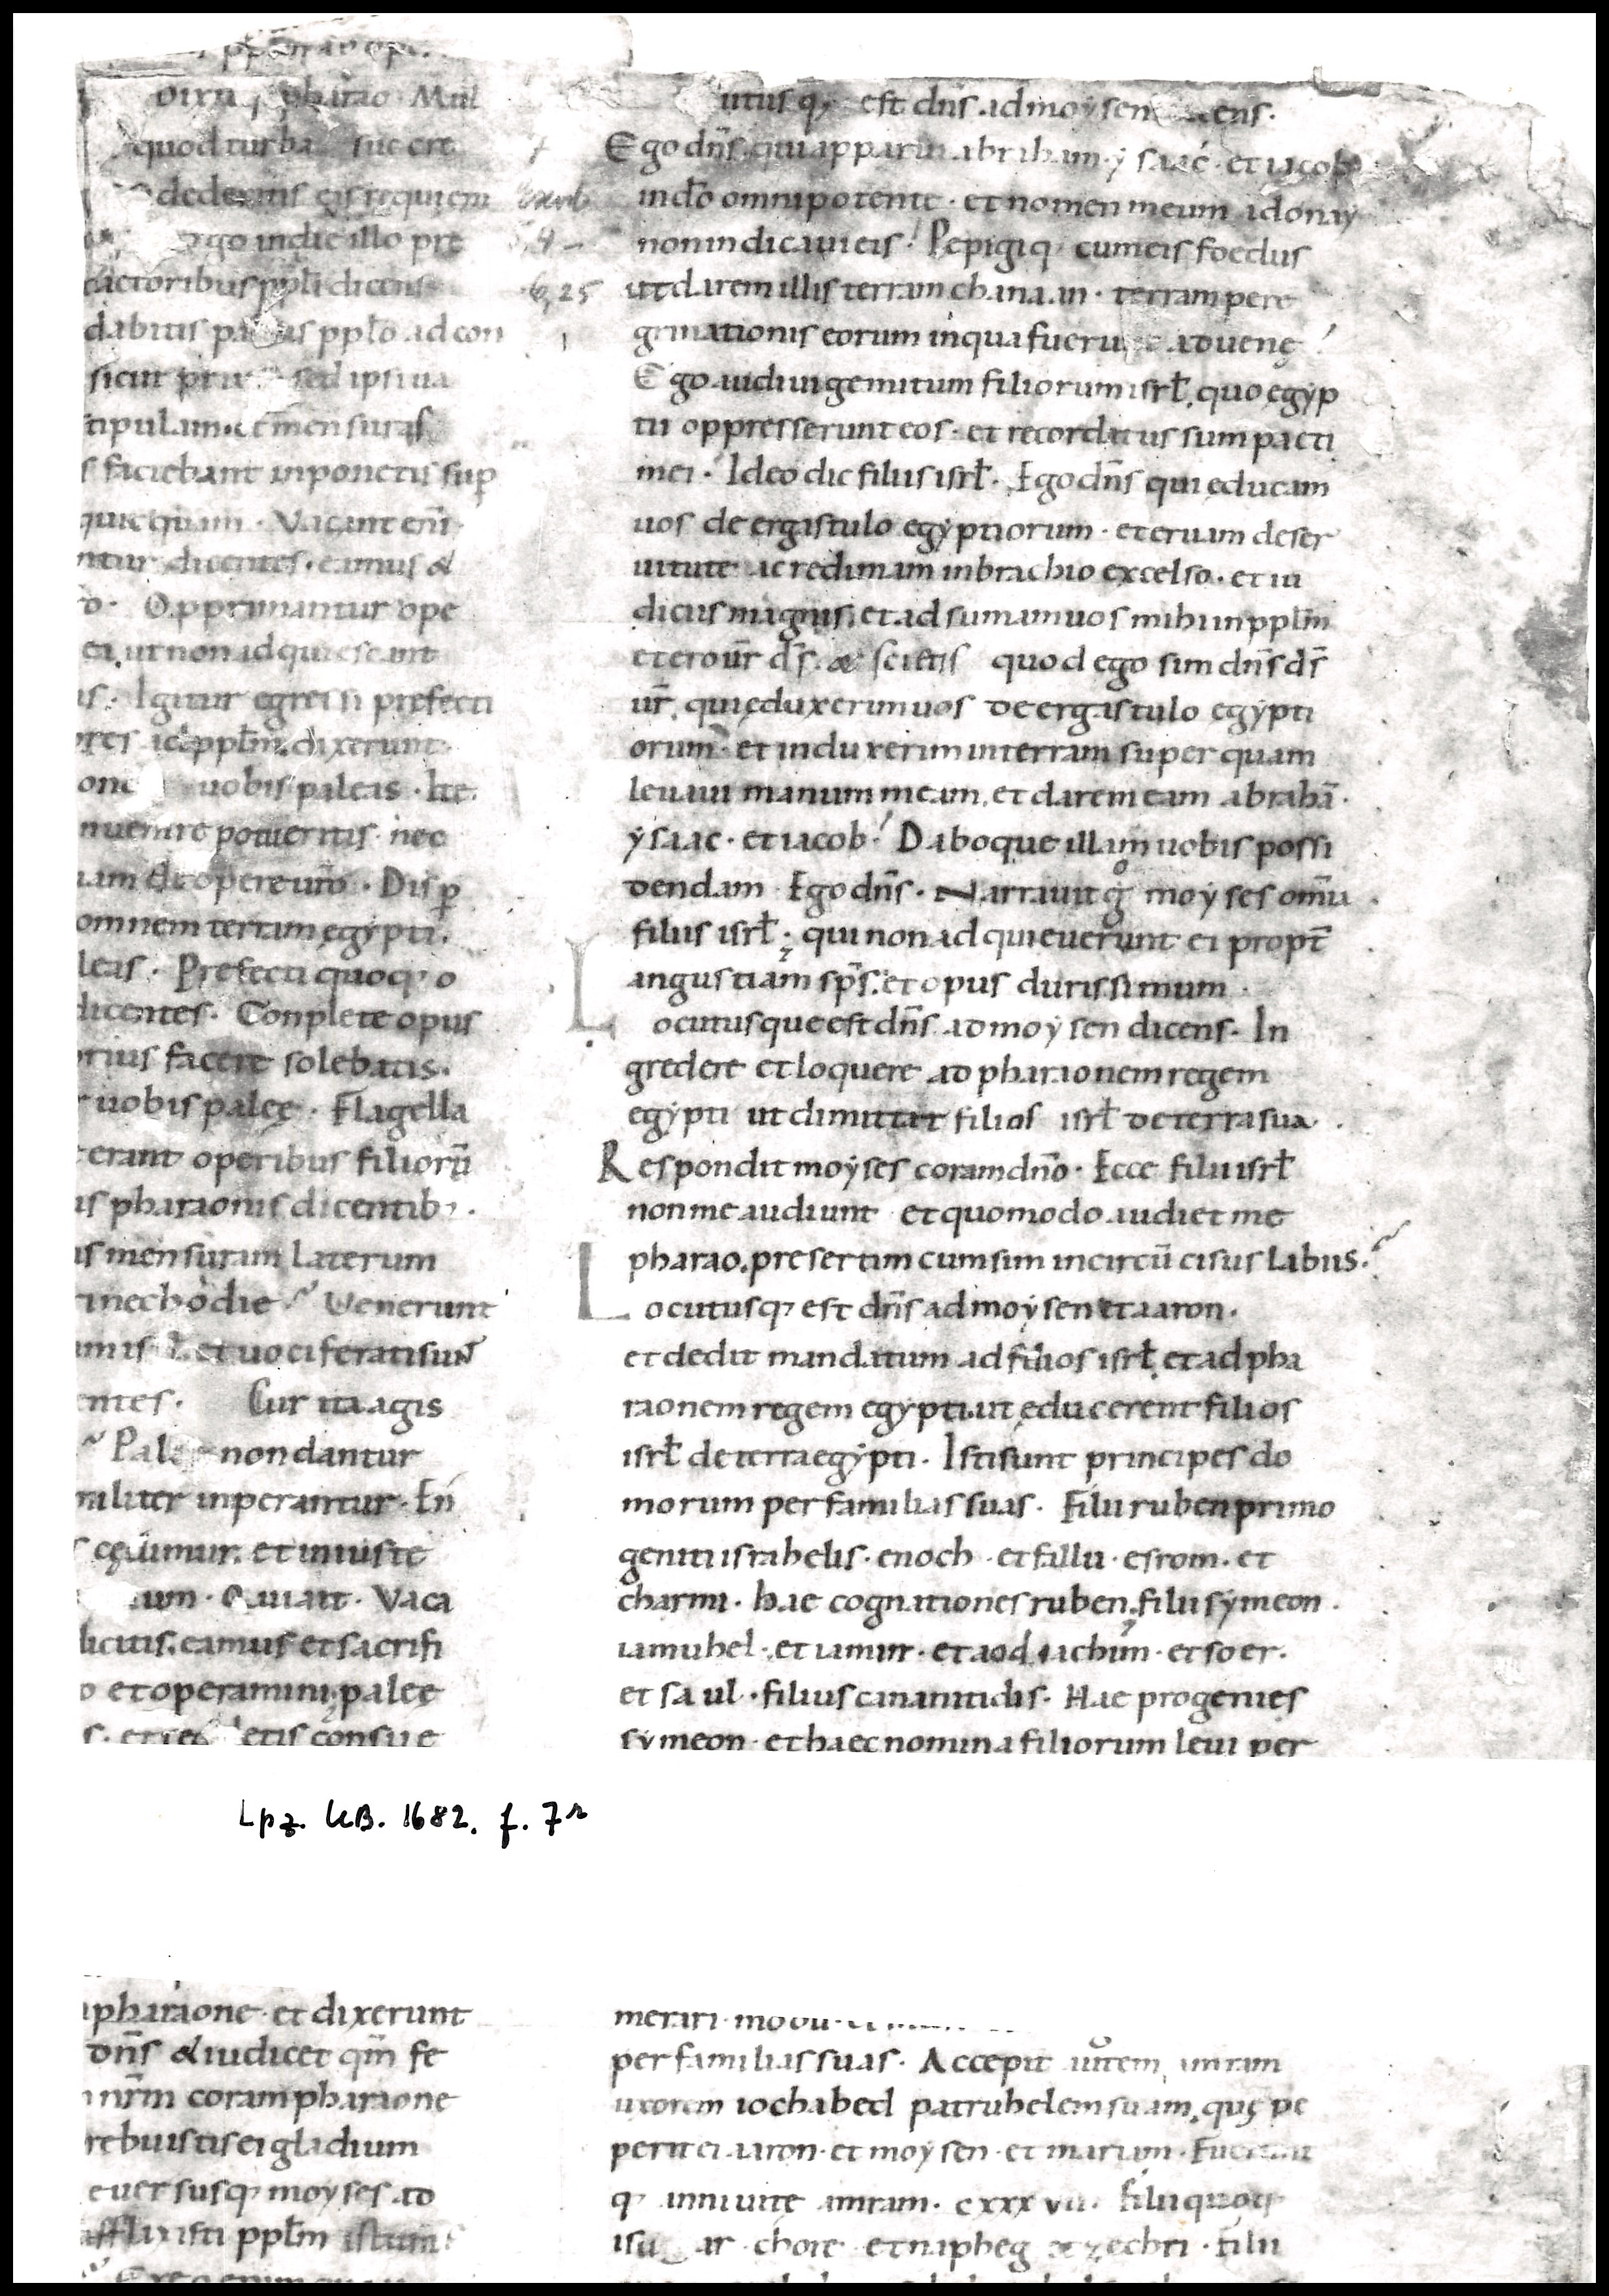 dixitq; pharao. Mul
quod turba succre
dederitis eis requiem
ergo in die illo pre
factoribus ppłi dicens
dabitis paleas ppło ad con
sicut prius sed ipsi ua
stipulam et mensuras
s faciebant inponetis sup
quicquam. Vacant eni
ntur dicentes. eamus &
o. Opprimantur ope
ea. ut non adquiescant
is. Igitur egressi prefecti
ores ad pplm. dixerunt
uobis paleas. Ite.
nuenire poteritis. nec
uam de opere uro. Disp
omnem terram egypti.
leas. Prefecti quoq; o
dicentes. Conplete opus
prius facere solebatis.
uobis paleę. Flagella
erant operibus filiorū
is pharaonis dicentib;.
is mensuram laterum
nec hodie Uenerunt
et uociferati sunt
entes. Cur ita agis
Paleę non dantur
militer inperantur. En
s cędimur. et iniuste
tum. Qui ait. Vaca
dicitis. eamus et sacrifi
o et operamini. paleę
s. et reddetis consue
utus q; est dns ad moysen dicens.
Ego dns. qui apparui abraham. ysaac. et iacob
in dō omnipotente. et nomen meum adonay
non indicaui eis. Pepigiq; cum eis foedus
ut darem illis terram chanaan. terram pere
grinationis eorum in qua fuerunt aduenę
Ego audiui gemitum filiorum isrł. quo egyp
tii oppresserunt eos. et recordatus sum pacti
mei. Ideo dic filiis isrł. Ego dns qui educam
uos de ergastulo egyptiorum. et eruam de ser
uitute ac redimam in brachio excelso. et iu
diciis magnis. et adsumam uos mihi in pplm
et ero ur ds. & scietis quod ego sim dns ds
ur. qui eduxerim uos de ergastulo egypti
orum. et induxerim in terram super quam
leuaui manum meam. et darem eam abrahā.
ysaac. et iacob. Daboque illam uobis possi
dendam Ego dns. Narrauit g° moyses omia
filiis isrł. qui non adquieuerunt ei propt
angustiam sps. et opus durissimum.
Locutusque est dns ad moysen dicens. In
gredere et loquere ad pharaonem regem
egypti ut dimittat filios isrł de terra sua.
Respondit moyses coram dno. Ecce filii isrł
non me audiunt et quomodo audiet me
pharao. presertim cum sim incircūcisus labiis.
Locutusq; est dns ad moysen et aaron.
et dedit mandatum ad filios isrł. et ad pha
raonem regem egypti. ut educerent filios
isrł de terra egypti. Isti sunt principes do
morum per familias suas. Filii ruben primo
geniti israhelis. enoch. et fallu. esrom. et
charmi. hae cognationes ruben. filii symeon.
iamuhel. et iamin. et aod. iachim. et soer.
et saul. filius cananitidis. Hae progenies
symeon. et haec nomina filiorum leui per
Lpz. UB. 1682. f. 7r
pharaone. et dixerunt
dns & iudicet qm fe
nrm coram pharaone
rebuistis ei gladium
euersusq; moyses ad
afflixisti pplm istum
per familias suas. Accepit autem amram
uxorem iochabed patruhelem suam. quę pe
perit ei aaron. et moysen. et mariam. Fuerunt
q; anni uite amram. cxxxvii. filii quoq;
isuar chore et napheg & zechri. filii